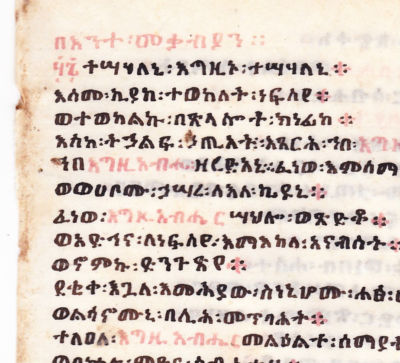 በእንተ፡መቃብያን ።
፶፮ ተሣሀለኒ፡እግዚኦ፡ተሣሃለኒ ፨
እስመ፡ኪያከ፡ተወከለት፡ነፍስየ ፨
ወተወከልኩ፡በጽላሎተ፡ክነፊከ ፨
እስከ፡ተኃልፍ፡ኃጢአት፡እጸርሕ፡ኀበ፡
ኀበ እግዚአብሔር፡ዘረድአኒ፡ፈነወ፡
ወወሀቦሙ፡ኃሣረ፡ለእለ፡ኬዱኒ ፨
ፈነወ፡እግዚአብሔር ሣህሎ፡ወጽድቆ ፨
ወአድኀና፡ለነፍስየ፡እማእከለ፡አናብስት ፨
ወኖምኩ፡ድንጉፅየ ፨
ደቂቀ፡እጓለ፡እመሕያው፡ስነኒሆሙ፡ሐፅ፡
ወልሳኖሙኒ፡በሊሕ፡መጥባሕት ፨
ተለዐለ፡እግዚአብሔር መልዕልተ፡